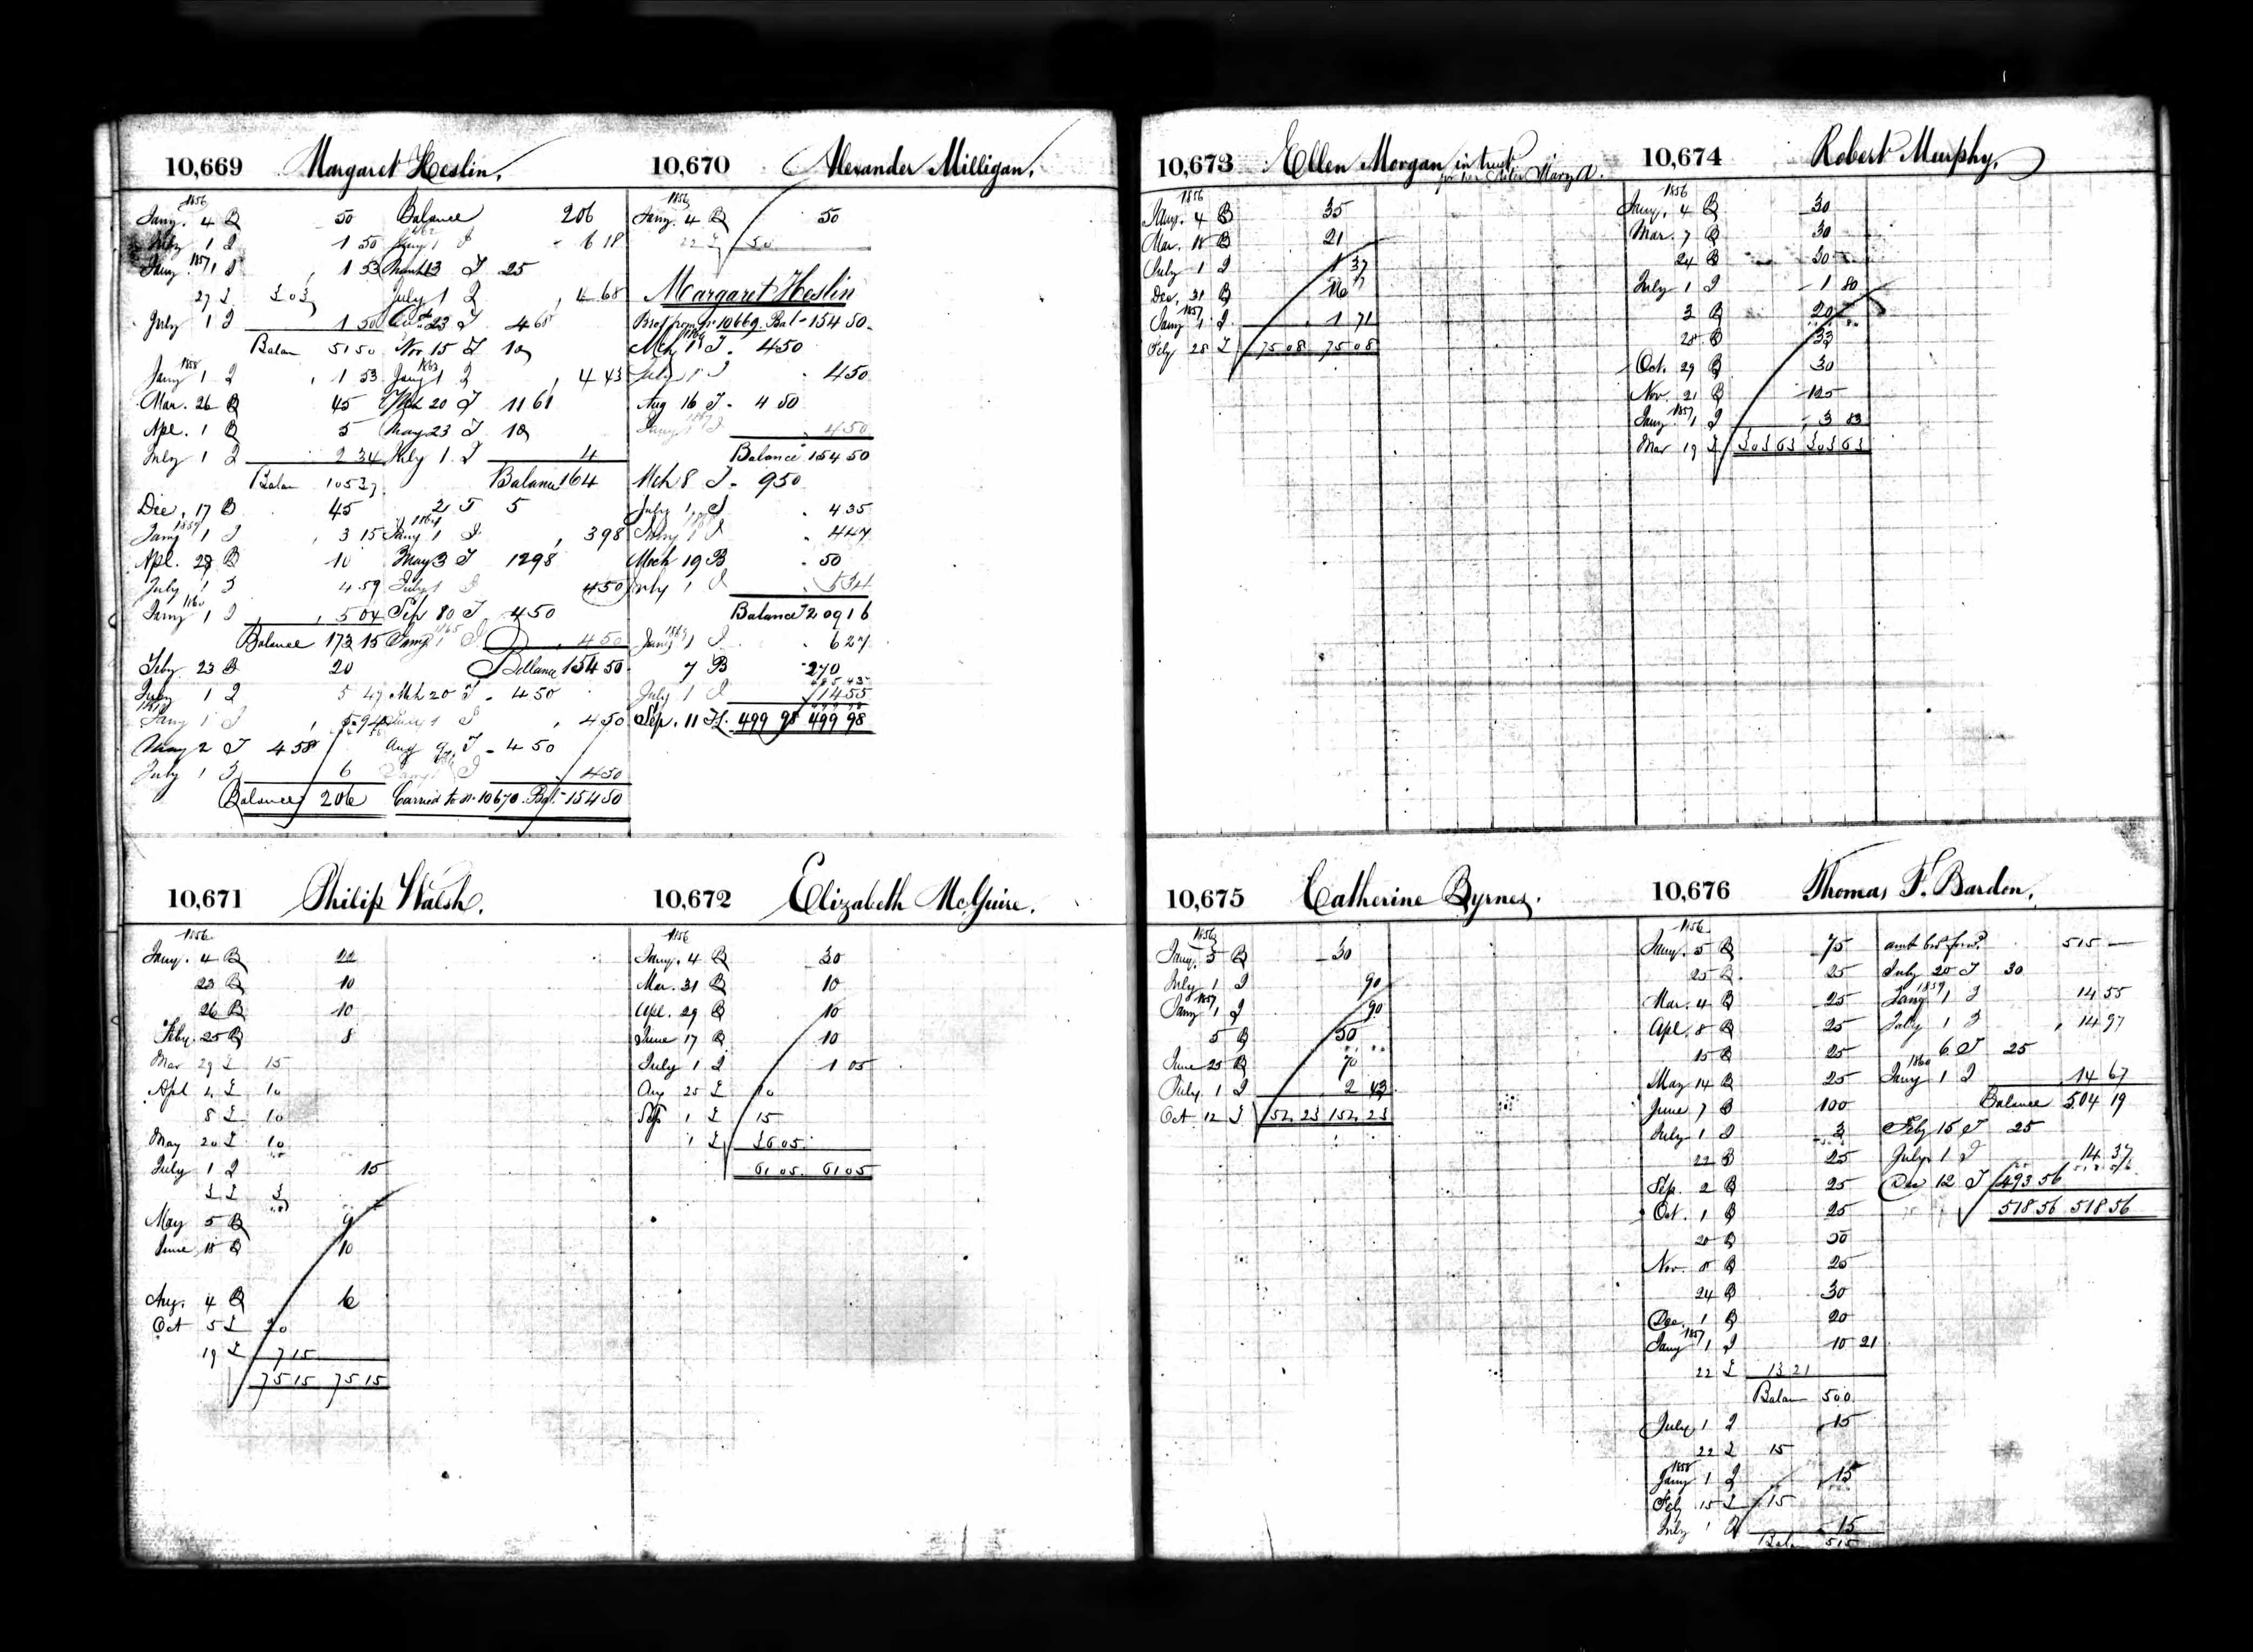 10,669 Margaret Heslin.
1856
Jany. 4 B 50
July 1 I 1 50
Jany. 1857 1 I 1 53
27 L 3 03
July 1 I 1 50
Balan 51 50
1858
Jany 1 I 1 53
Mar. 26 B 45
Apl. 1 B 5
July 1 I 2 34
Balan 105 37
Dec. 17 B 45
1859
Jany 1 I 3 15
Apl. 28 B 10
July 1 I 4 59
1860
Jany 1 I 5 04
Balance 173 15
Feby 23 B 20
July 1 I 5 49
Jany 1 I 5 94
May 2 T 4 58
July 1 I 6
Balance 206
Balance 206
1862
Jany 1 I 6 18
March 13 T 25
July 1 I 4 68
23 T 4 68
Nov. 15 T 10
1863
Jany 1 I 4 43
Mch 20 T 11 61
May 23 T 10
July 1 I 4
Balance 164
21 T 5
1864
Jany 1 I 3 98
May 3 T 12 98
July 1 I 4 50
Sep 80 T 4 50
1865
Jany 1 I 4 50
Ballance 154 50
Mch 20 T 4 50
July 1 I 4 50
Aug 9 T 4 50
Jany 1 I 4 50
Carried to No. 10670. Bal. 154 50
10,670 Alexander Milligan.
1856
Jany. 4 B 50
22 L 50
Margaret Heslin
Brot from No. 10669. Bal 154 50
Mch 19 T 4 50
July 1 I 4 50
Aug 16 T 4 50
Jany 1867 1 I 4 50
Balance 154 50
Mch 8 T 9 50
July 1 I 4 35
Jany 1 I 4 47
Mch 19 B 50
July 1 I 5 34
Balance 209 16
Jany 1869 1 I 6 27
7 B 270
July 1 I 14 55
Sep. 11 T 499 98 499 98
10,671 Philip Walsh.
1856
Jany. 4 B 22
23 B 10
26 B 10
Feby. 25 B 8
Mar 29 L 15
Apl 2 L 10
8 L 10
May 20 L 10
July 1 I 15
3 L 3
May 5 B 9
June 18 B 10
Aug. 4 B 6
Oct 5 L 20
19 L 7 15
75 15 75 15
10,672 Elizabeth McGuire.
1856
Jany. 4 B 30
Mar. 31 B 10
Apl. 29 B 10
June 17 B 10
July 1 I 1 05
Aug 25 L 10
Sep 1 L 15
1 L 36 05
61 05 61 05
10,673 Ellen Morgan in trust
for her sister Mary A.
1856
Jany. 4 B 35
Mar. 18 B 21
July 1 I 1 37
Dec. 31 B 16
1857
Jany 1 I 1 71
Feby 28 L 75 08 75 08
10,674 Robert Murphy.
1856
Jany. 4 B 30
Mar. 7 B 30
24 B 30
July 1 I 1 80
3 B 20
28 B 33
Oct. 29 B 30
Nov. 21 B 125
1857
Jany. 1 I 3 83
Mar 19 L 303 63 303 63
10,675 Catherine Byrnes.
1856
Jany. 5 B 30
July 1 I 90
1857
Jany 1 I 90
5 B 50
June 25 B 70
July 1 I 2 43
Oct 12 L 152 23 152 23
10,676 Thomas F. Bardon.
1856
Jany. 5 B 75
25 B 25
Mar. 4 B 25
Apl. 8 B 25
15 B 25
May 14 B 25
June 7 B 100
July 1 I 3
22 B 25
Sep. 2 B 25
Oct. 1 B 25
20 B 50
Nov. 8 B 25
24 B 30
Dec. 1 B 20
1857
Jany 1 I 10 21
22 L 13 21
Balan 500
July 1 I 15
22 L 15
1858
Jany 1 I 15
Feby 15 L 15
July 1 I 15
Balan 515
amt bro forwd 515 —
July 20 T 30
1859
Jany 1 I 14 55
July 1 I 14 97
6 T 25
1860
Jany 1 I 14 67
Balance 504 19
Feby 15 T 25
July 1 I 14 37
Dec 12 T 493 56
518 56 518 56